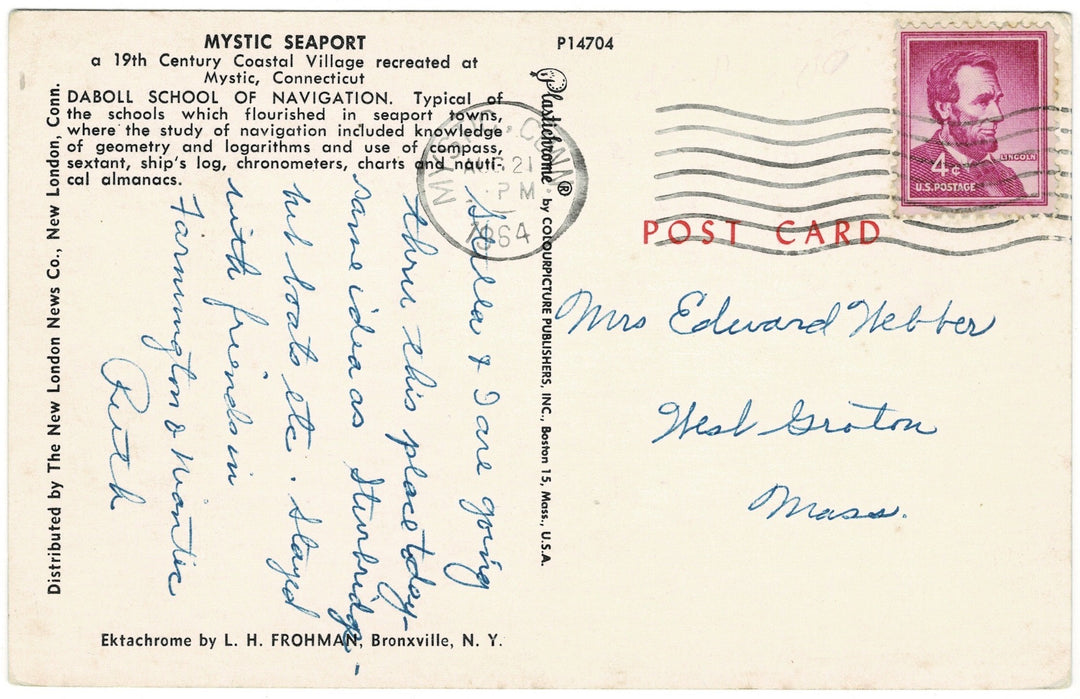 MYSTIC SEAPORT
a 19th Century Coastal Village recreated at
Mystic, Connecticut
DABOLL SCHOOL OF NAVIGATION. Typical of
the schools which flourished in seaport towns,
where the study of navigation included knowledge
of geometry and logarithms and use of compass,
sextant, ship's log, chronometers, charts and nauti-
cal almanacs.
Distributed by The New London News Co., New London, Conn.
& I are going
thru this place today-
same idea as Sturbridge -
but boats etc. Stayed
with friends in
Farmington & Niantic
Ruth
Ektachrome by L. H. FROHMAN, Bronxville, N. Y.
Plastichrome® by COLOURPICTURE PUBLISHERS, INC., Boston 15, Mass., U.S.A.
P14704
MYSTIC CONN.
AUG 21
PM
1964
LINCOLN
4¢
U.S. POSTAGE
POST CARD
Mrs Edward Webber
West Groton
Mass.